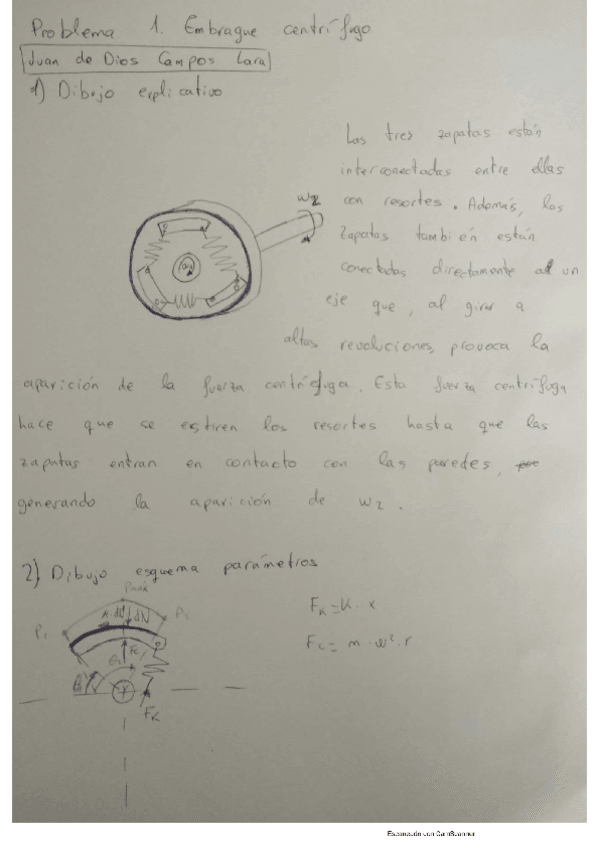 Problema 1. Embrague centrífugo
Juan de Dios Campos Lara
1) Dibujo explicativo
Las tres zapatas están
interconectadas entre ellas
con resortes. Además, las
zapatas también están
conectadas directamente a un
eje que, al girar a
altas revoluciones, provoca la
aparición de la fuerza centrífuga. Esta fuerza centrífuga
hace que se estiren los resortes hasta que las
zapatas entran en contacto con las paredes,
generando la aparición de w2.
w2
2) Dibujo esquema parámetros
Pmáx
dN
P1
Fc
θ1
FK
FK = K · x
Fc = m · w² · r
Escaneado con CamScanner